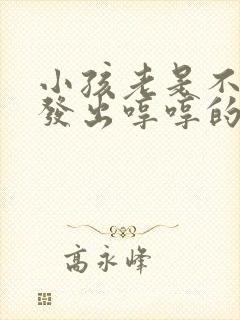 小孩老是不
發出哼哼的
高永峰